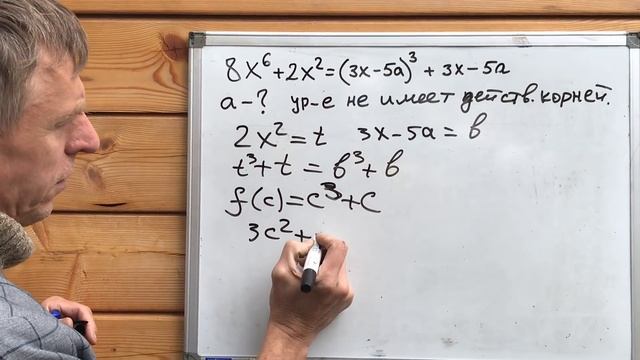 8x⁶+2x²=(3x-5a)³+3x-5a
a-? ур-е не имеет действ. корней.
2x²=t 3x-5a=b
t³+t=b³+b
f(c)=c³+c
3c²+